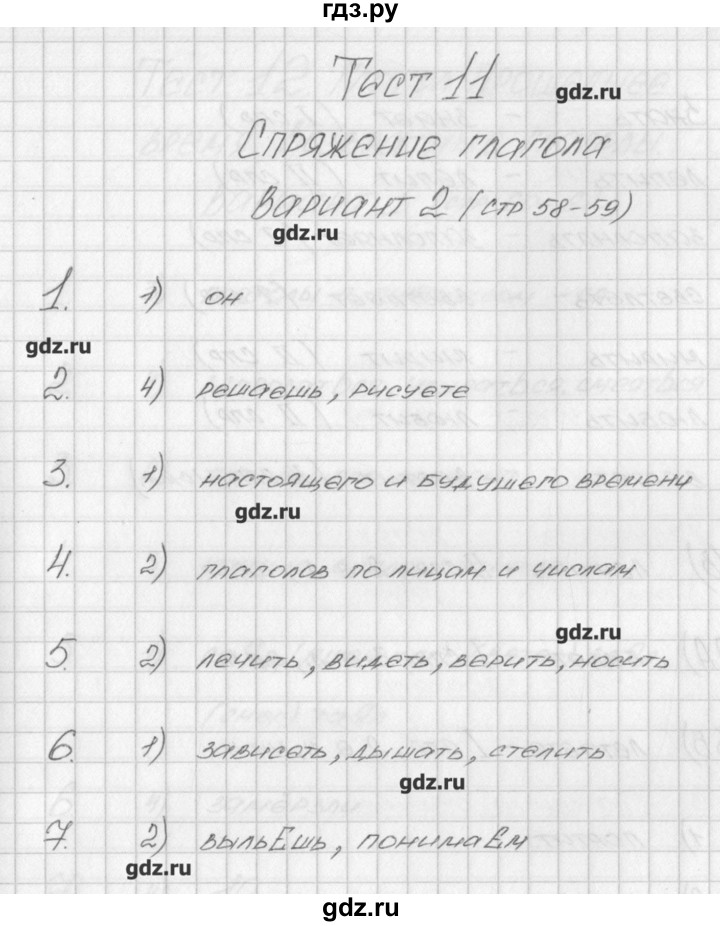 гдз.ру
Тест 11
gdz.ru
Спряжение глагола
Вариант 2 (стр 58-59)
gdz.ru
1. 1) он
gdz.ru
2. 4) решаешь, рисуете
3. 1) настоящего и будущего времени
gdz.ru
4. 2) глаголов по лицам и числам
gdz.ru
5. 2) лечить, видеть, верить, носить
6. 1) зависеть, дышать, стелить
gdz.ru
7. 2) выльЕшь, понимаЕм
gdz.ru
gdz.ru